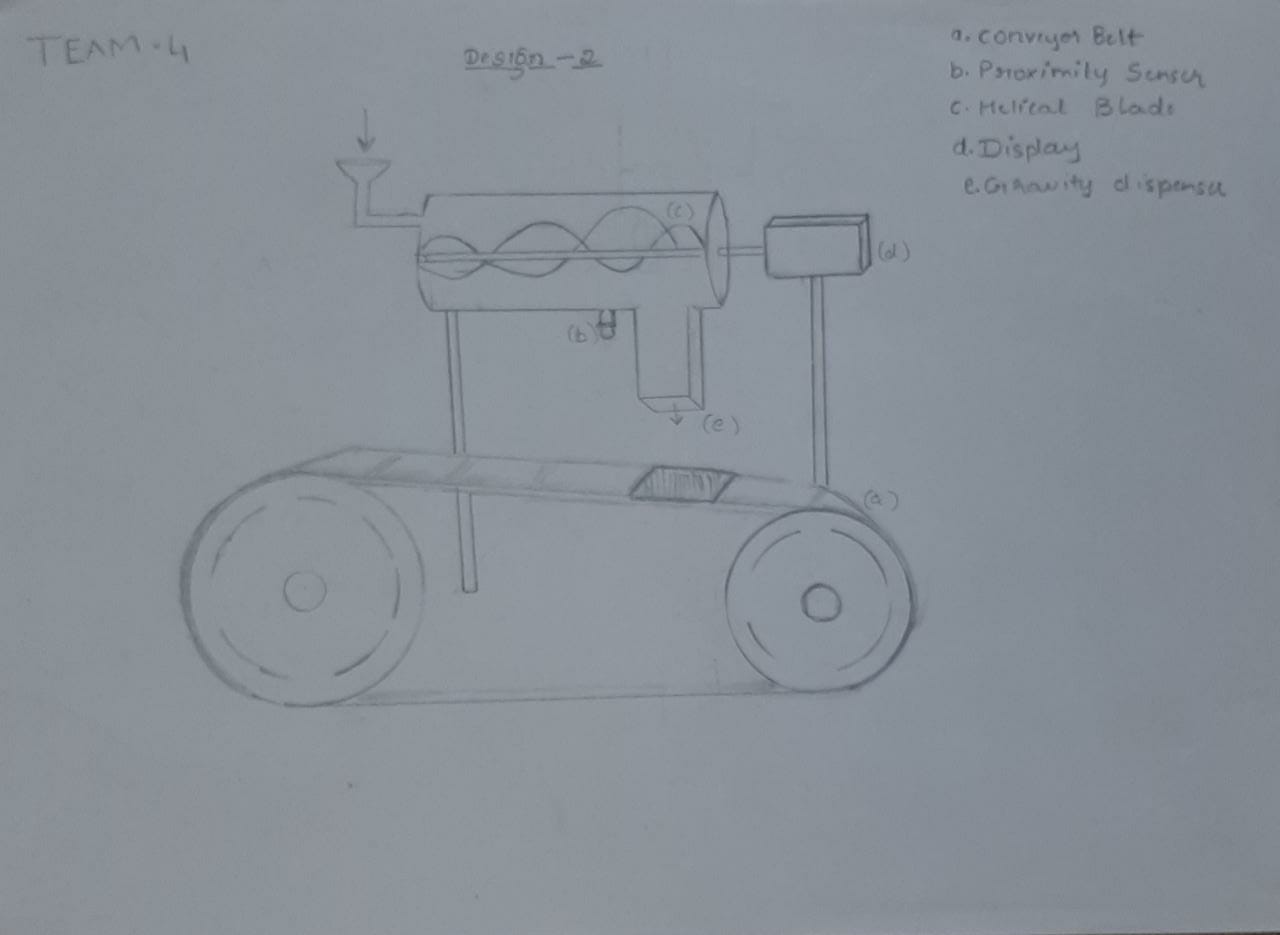 TEAM-4
Design - 2
a. conveyor Belt
b. Proximity Senser
c. Helical Blade
d. Display
e. Gravity dispenser
(c)
(d)
(b)
(e)
(a)